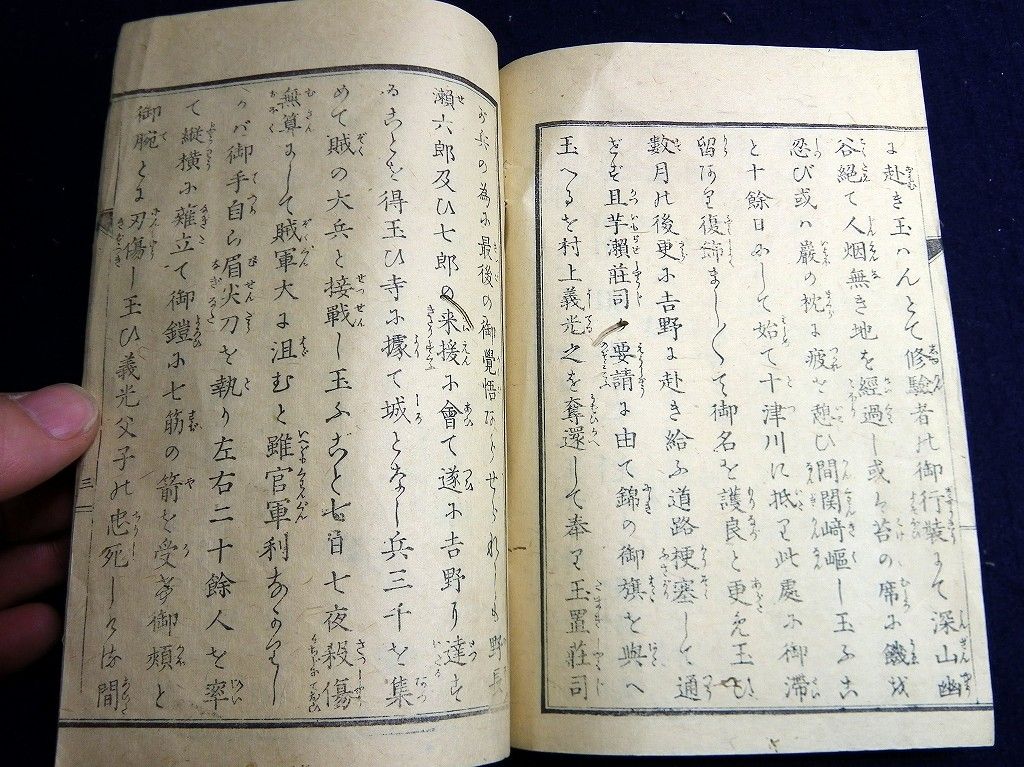 に赴き玉ハんとて修験者の御行装にて深山幽
谷絶て人烟無き地を經過し或ハ苔の席に饑を
忍び或ハ巖の枕に疲を憩ひ間関﨑嶇し玉ふこ
と十餘日にして始て十津川に抵り此處に御滞
留あり復飾まし〱て御名を護良と更め玉ひ
數月の後更に吉野に赴き給ふ道路梗塞して通
ぜず且芋瀬莊司の要請に由て錦の御旗を與へ
玉へるを村上義光之を奪還して奉り玉置莊司
が兵の為に最後の御覺悟ありせられしも野長
瀬六郎及ひ七郎の来援に會て遂に吉野に達す
ることを得玉ひ寺に據て城となし兵三千を集
めて賊の大兵と接戦し玉ふこと七日七夜殺傷
無算にして賊軍大に沮むと雖官軍利あらざりし
かバ御手自ら眉尖刀を執り左右二十餘人を率
て縦横に薙立て御鎧に七筋の箭を受け御頬と
御腕とに刃傷し玉ひ義光父子の忠死しける間
三